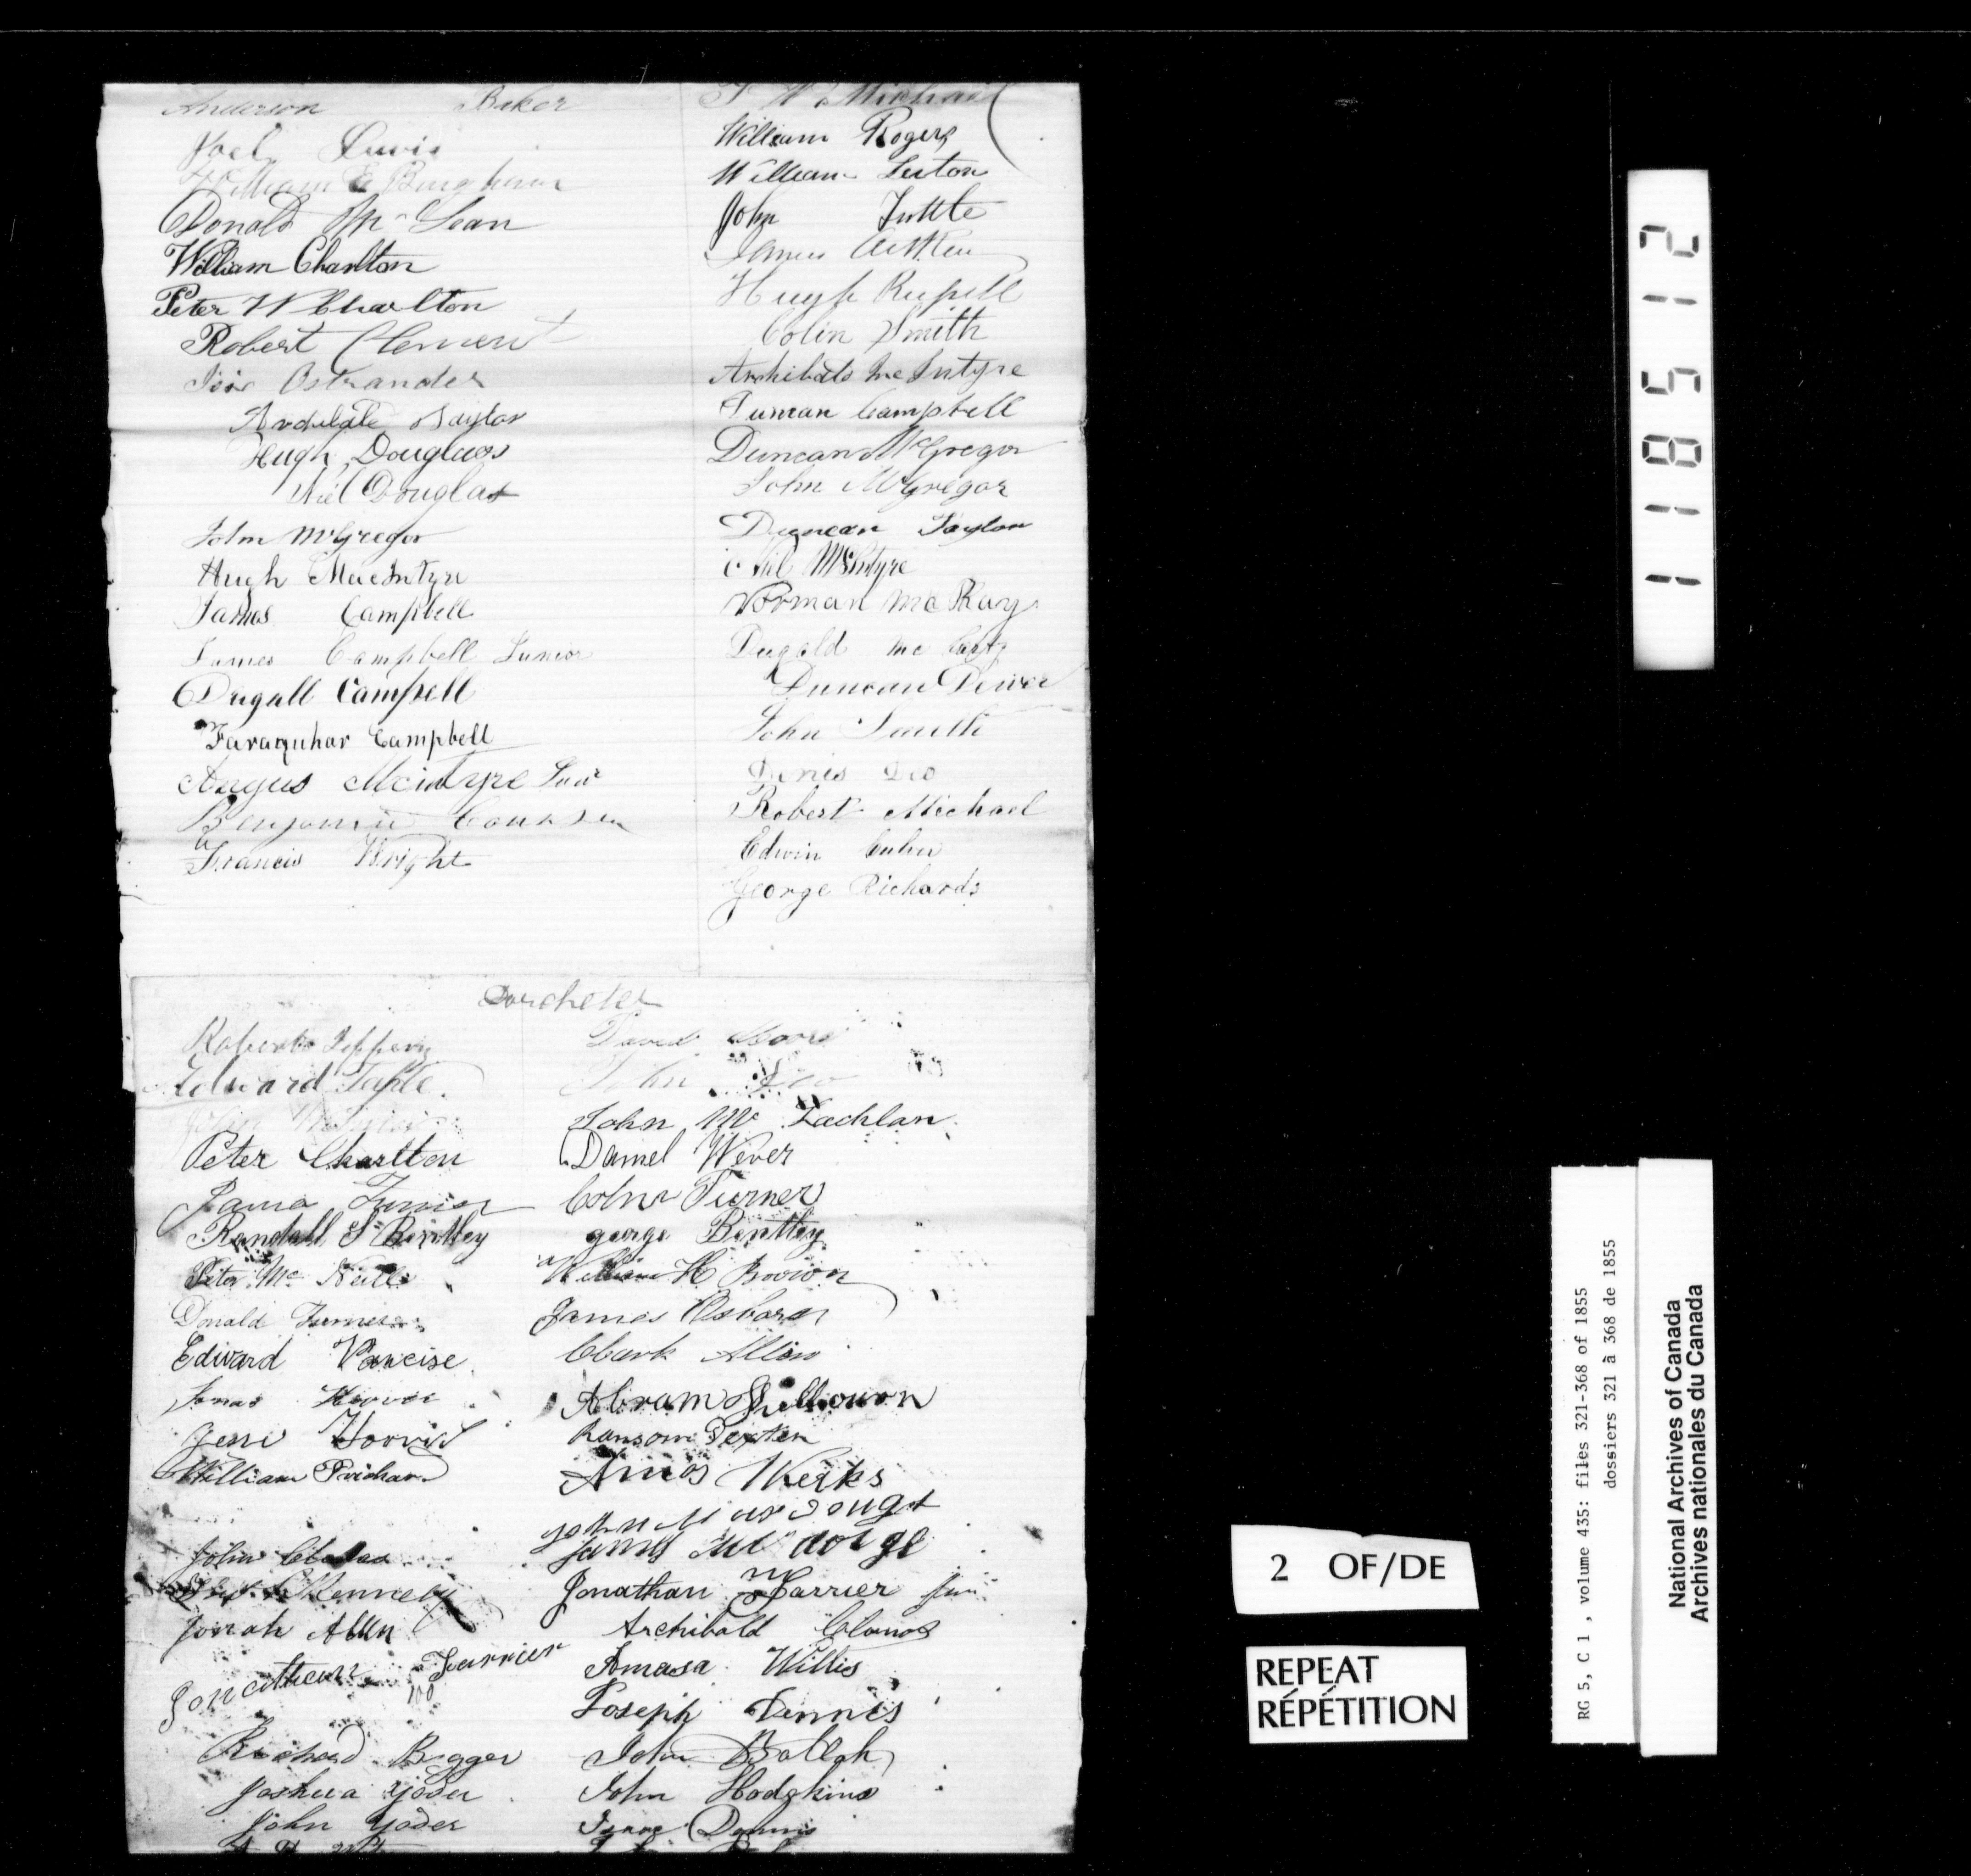 Anderson Baker
Joel Lewis
William E Bingham
Donald Mc Lean
William Charlton
Peter W Charlton
Robert Clement
Ostrander
Archibald Taylor
Hugh Douglass
Niel Douglas
John McGregor
Hugh MacIntyre
James Campbell
James Campbell Junior
Dugall Campell
Faraquhar Campbell
Angus Mcintyre
Benjamin
Francis Wright
Michael
William Rogers
William Seiton
John Tuttle
James Aitken
Hugh Russell
Colin Smith
Archibald McIntyre
Duncan Campbell
Duncan McGregor
John McGregor
Duncan Taylor
Niel McIntyre
Norman McKay
Dugald Mc
Duncan Dewer
John Smith
Denis Deo
Robert Michael
Edwin
George Richards
Dorchester
Robert Jeffery
Edward Tuple
John
Peter Charlton
James Turner
Randall S Bentley
Peter Mc Neill
Donald Turner
Edward Vancise
Jonas
Jesse
William Prichard
John
Kennedy
Jonah Allen
Jonathan Farrier
Richard Bigger
Joshua Yoder
John Yoder
David Moore
John
John Mc Lachlan
Daniel Wever
Colin Turner
george Bentley
William H Brown
James Osborn
Clark Allen
Abram
Ransom Dexter
Amos Weeks
John
James Mc
Jonathan Farrier Jun
Archibald
Amasa Willis
Joseph Dennis
John Bollah
John Hodgkins
Isaac Dennis
118512
2 OF/DE
REPEAT
RÉPÉTITION
RG 5, C 1 , volume 435: files 321-368 of 1855
dossiers 321 à 368 de 1855
National Archives of Canada
Archives nationales du Canada